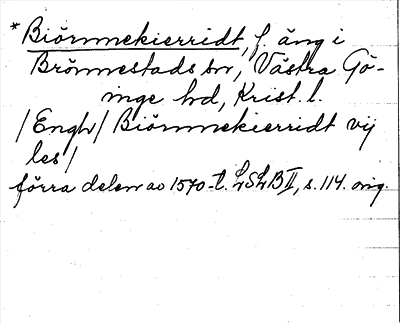 * Biörnnekierridt, f. äng i
Brönnestads sn, Västra Gö-
inge hd, Krist. l.
/Engh/ Biörnnekierridt vij
les/
förra delen av 1570-t. LSLB II, s. 114. orig.